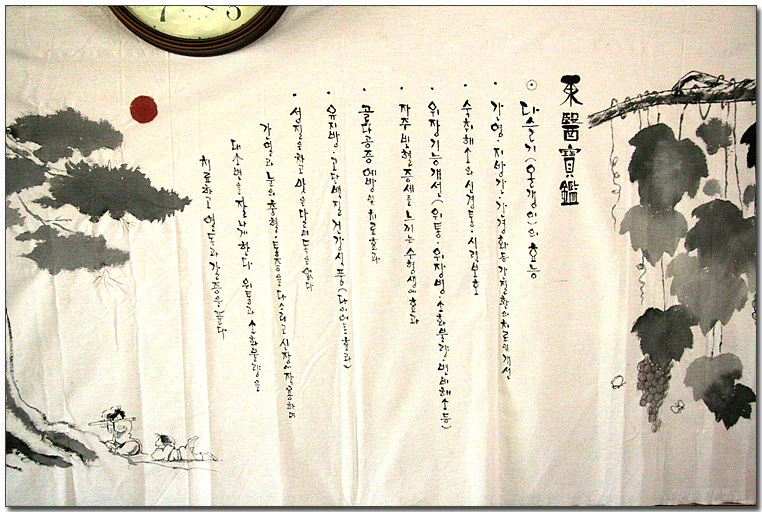 東醫寶鑑
다슬기(올갱이)의 효능
간염·지방간·간경화등 간질환의 치료및 개선
숙취해소와 신경통·시력보호
위장기능개선(위통·위장병·소화불량·변비해소등)
자주빈혈증세를 느끼는 수험생에 효과
골다공증 예방및 치료효과
유지방·고단백질 건강식품(다이어트효과)
성질은 차고 맛은 달며 독은 없다
간열과 눈의 충혈·통증을 다스리고 신장에 작용하며
대소변을 잘 나게한다 위통과 소화불량을
치료하고 열독과 갈증을 푼다
5